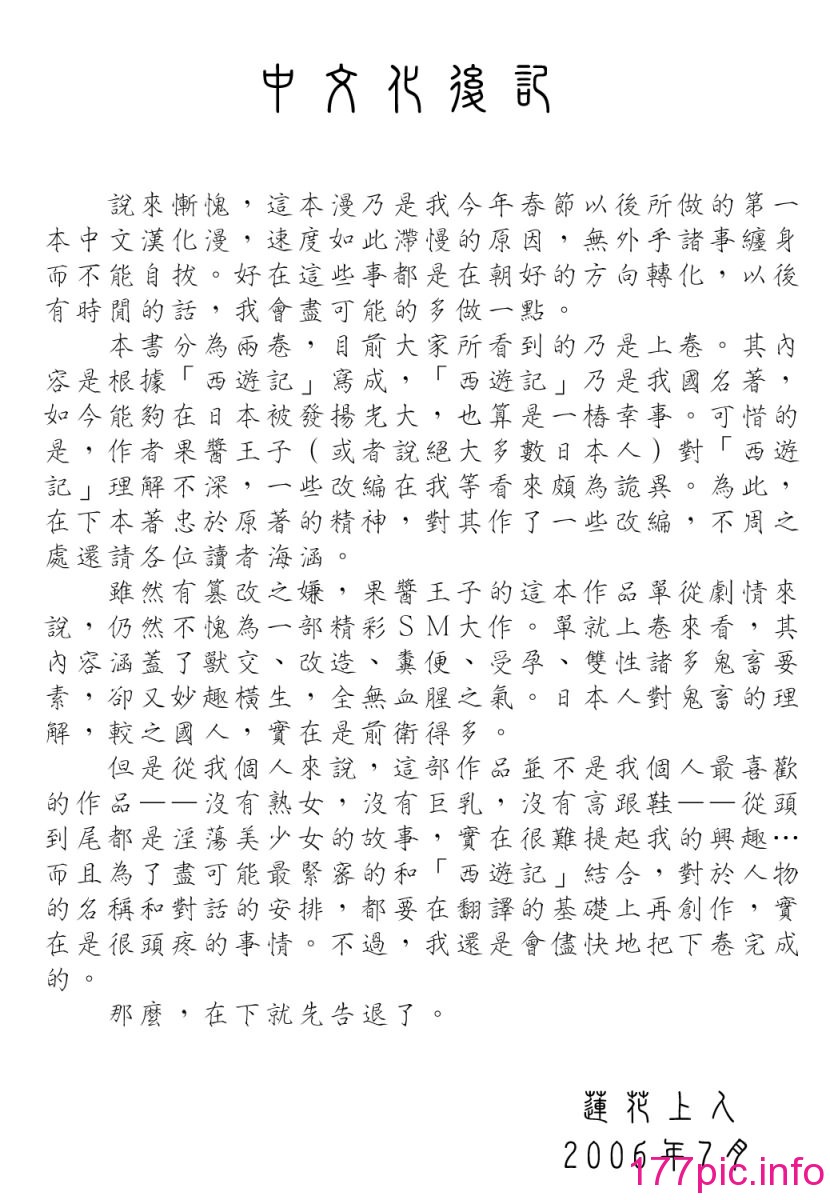 中文化後記
說來慚愧，這本漫乃是我今年春節以後所做的第一
本中文漢化漫，速度如此滯慢的原因，無外乎諸事纏身
而不能自拔。好在這些事都是在朝好的方向轉化，以後
有時閒的話，我會盡可能的多做一點。
本書分為兩卷，目前大家所看到的乃是上卷。其內
容是根據「西遊記」寫成，「西遊記」乃是我國名著，
如今能夠在日本被發揚光大，也算是一樁幸事。可惜的
是，作者果醬王子（或者說絕大多數日本人）對「西遊
記」理解不深，一些改編在我等看來頗為詭異。為此，
在下本著忠於原著的精神，對其作了一些改編，不周之
處還請各位讀者海涵。
雖然有篡改之嫌，果醬王子的這本作品單從劇情來
說，仍然不愧為一部精彩ＳＭ大作。單就上卷來看，其
內容涵蓋了獸交、改造、糞便、受孕、雙性諸多鬼畜要
素，卻又妙趣橫生，全無血腥之氣。日本人對鬼畜的理
解，較之國人，實在是前衛得多。
但是從我個人來說，這部作品並不是我個人最喜歡
的作品——沒有熟女，沒有巨乳，沒有高跟鞋——從頭
到尾都是淫蕩美少女的故事，實在很難提起我的興趣…
而且為了盡可能最緊密的和「西遊記」結合，對於人物
的名稱和對話的安排，都要在翻譯的基礎上再創作，實
在是很頭疼的事情。不過，我還是會儘快地把下卷完成
的。
那麼，在下就先告退了。
蓮花上人
2006年7月
177pic.info